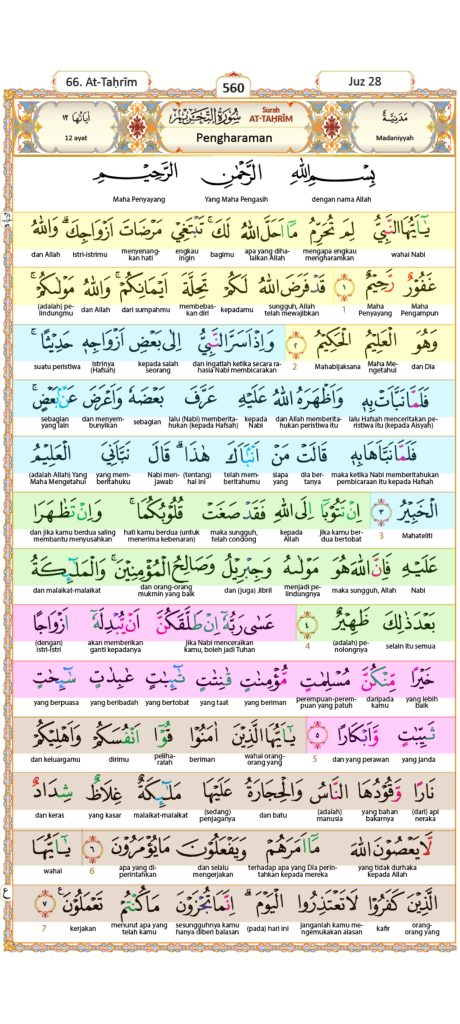 66. At-Taḥrīm
560
Juz 28
مَدَنِيَّةٌ
Madaniyyah
سُوْرَةُ التَّحْرِيْمِ
Surah
AT-TAḤRĪM
Pengharaman
اٰيَاتُهَا ١٢
12 ayat
بِسْمِ اللّٰهِ الرَّحْمٰنِ الرَّحِيْمِ
dengan nama Allah Yang Maha Pengasih Maha Penyayang
يٰٓاَيُّهَا النَّبِيُّ لِمَ تُحَرِّمُ مَآ اَحَلَّ اللّٰهُ لَكَۚ تَبْتَغِيْ مَرْضَاتَ اَزْوَاجِكَۗ وَاللّٰهُ
wahai Nabi mengapa engkau mengharamkan apa yang dihalalkan Allah bagimu engkau ingin menyenangkan hati istri-istrimu dan Allah
غَفُوْرٌ رَّحِيْمٌ ١ قَدْ فَرَضَ اللّٰهُ لَكُمْ تَحِلَّةَ اَيْمَانِكُمْۚ وَاللّٰهُ مَوْلٰىكُمْۚ
Maha Pengampun Maha Penyayang 1 sungguh, Allah telah mewajibkan kepadamu membebaskan diri dari sumpahmu dan Allah (adalah) pelindungmu
وَهُوَ الْعَلِيْمُ الْحَكِيْمُ ٢ وَاِذْ اَسَرَّ النَّبِيُّ اِلٰى بَعْضِ اَزْوَاجِهٖ حَدِيْثًاۚ
dan Dia Maha Mengetahui Mahabijaksana 2 dan ingatlah ketika secara rahasia Nabi membicarakan kepada salah seorang istrinya (Hafsah) suatu peristiwa
فَلَمَّا نَبَّاَتْ بِهٖ وَاَظْهَرَهُ اللّٰهُ عَلَيْهِ عَرَّفَ بَعْضَهٗ وَاَعْرَضَ عَنْۢ بَعْضٍۚ
lalu Hafsah menceritakan peristiwa itu (kepada Aisyah) dan Allah memberitahukan peristiwa itu kepada Nabi lalu (Nabi) memberitahu (kepada Hafsah) sebagian dan menyembunyikan sebagian yang lain
فَلَمَّا نَبَّاَهَا بِهٖ قَالَتْ مَنْ اَنْۢبَاَكَ هٰذَاۗ قَالَ نَبَّاَنِيَ الْعَلِيْمُ
maka ketika Nabi memberitahukan pembicaraan itu kepada Hafsah dia bertanya siapa yang telah memberitahumu (tentang) hal ini Nabi menjawab yang memberitahuku (adalah Allah) Yang Maha Mengetahui
الْخَبِيْرُ ٣ اِنْ تَتُوْبَآ اِلَى اللّٰهِ فَقَدْ صَغَتْ قُلُوْبُكُمَاۚ وَاِنْ تَظٰهَرَا
Mahateliti 3 jika kamu berdua bertobat kepada Allah maka sungguh, telah condong hati kamu berdua (untuk menerima kebenaran) dan jika kamu berdua saling membantu menyusahkan
عَلَيْهِ فَاِنَّ اللّٰهَ هُوَ مَوْلٰىهُ وَجِبْرِيْلُ وَصَالِحُ الْمُؤْمِنِيْنَۚ وَالْمَلٰۤىِٕكَةُ
Nabi maka sungguh, Allah menjadi pelindungnya dan (juga) Jibril dan orang-orang mukmin yang baik dan malaikat-malaikat
بَعْدَ ذٰلِكَ ظَهِيْرٌ ٤ عَسٰى رَبُّهٗٓ اِنْ طَلَّقَكُنَّ اَنْ يُّبْدِلَهٗٓ اَزْوَاجًا
selain itu semua (adalah) penolongnya 4 jika Nabi menceraikan kamu, boleh jadi Tuhan akan memberikan ganti kepadanya (dengan) istri-istri
خَيْرًا مِّنْكُنَّ مُسْلِمٰتٍ مُّؤْمِنٰتٍ قٰنِتٰتٍ تٰۤىِٕبٰتٍ عٰبِدٰتٍ سٰۤىِٕحٰتٍ
yang lebih baik daripada kamu perempuan-perempuan yang patuh yang beriman yang taat yang bertobat yang beribadah yang berpuasa
ثَيِّبٰتٍ وَّاَبْكَارًا ٥ يٰٓاَيُّهَا الَّذِيْنَ اٰمَنُوْا قُوْٓا اَنْفُسَكُمْ وَاَهْلِيْكُمْ
yang janda dan yang perawan 5 wahai orang-orang yang beriman peliharalah dirimu dan keluargamu
نَارًا وَّقُوْدُهَا النَّاسُ وَالْحِجَارَةُ عَلَيْهَا مَلٰۤىِٕكَةٌ غِلَاظٌ شِدَادٌ
(dari) api neraka yang bahan bakarnya (adalah) manusia dan batu (sedang) penjaganya malaikat-malaikat yang kasar dan keras
لَّا يَعْصُوْنَ اللّٰهَ مَآ اَمَرَهُمْ وَيَفْعَلُوْنَ مَا يُؤْمَرُوْنَ ٦ يٰٓاَيُّهَا
yang tidak durhaka kepada Allah terhadap apa yang Dia perintahkan kepada mereka dan selalu mengerjakan apa yang diperintahkan 6 wahai
الَّذِيْنَ كَفَرُوْا لَا تَعْتَذِرُوا الْيَوْمَۗ اِنَّمَا تُجْزَوْنَ مَا كُنْتُمْ تَعْمَلُوْنَ ٧
orang-orang yang kafir janganlah kamu mengemukakan alasan (pada) hari ini sesungguhnya kamu hanya diberi balasan menurut apa yang telah kamu kerjakan 7
ع